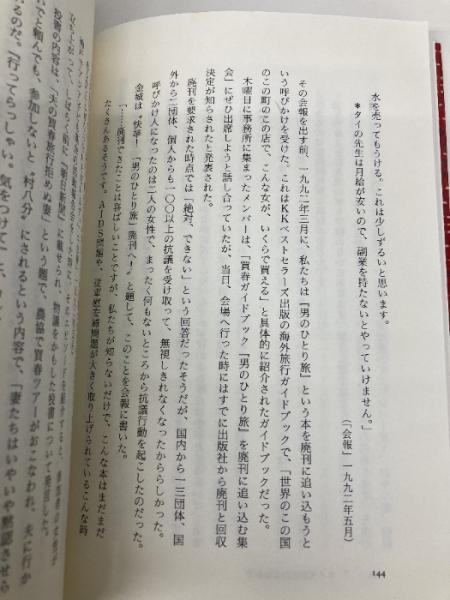 水を売ってもうける。これは少しずるいと思います。
＊タイの先生は月給が安いので、副業を持たないとやっていけません。」
（「会報」一九九二年五月）
その会報を出す前、一九九二年三月に、私たちは『男のひとり旅』という本を廃刊に追い込もうと
いう呼びかけを受けた。これはKKベストセラーズ出版の海外旅行ガイドブックで、「世界のこの国
のこの町のこの店で、こんな女が、いくらで買える」と具体的に紹介されたガイドブックだった。
木曜日に事務所に集まったメンバーは、「買春ガイドブック『男のひとり旅』を廃刊に追い込む集
会」にぜひ出席しようと話し合っていたが、当日、会場へ行った時にはすでに出版社から廃刊と回収
決定が知らされたと発表された。
廃刊を要求された時点では「絶対、できない」という回答だったそうだが、国内から一三団体、国
外から二団体、個人からも一〇〇以上の抗議を受け取って、無視しきれなくなったからしかった。
呼びかけ人になったのは二人の女性で、まったく何もないところから抗議行動を起こしたのだった。
金城は"快挙！『男のひとり旅』廃刊へ！"と題して、このことを会報に書いた。
「……廃刊できたことは喜ばしいことですが、私たちが知らないだけで、こんな本はまだまだ
たくさんあるそうです。AIDS問題や、従軍慰安婦問題が大きく取り上げられているこんな時
しばらく前に『朝日新聞』に載せられ、物議をかもした投書について発言した。
投書の内容は、「夫の買春旅行拒めぬ妻」という題で、農協で買春ツアーがおこなわれ、夫に行か
ないでと頼んでも、参加しないと"村八分"にされるという内容で、妻たちはいやいや黙認させら
れるのだ。「行ってらっしゃい。気をつけて
144